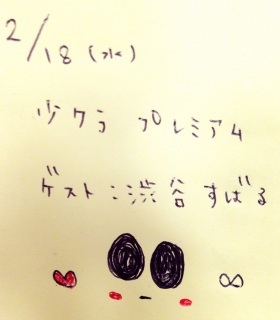 2/18(水)
少クラ プレミアム
ゲスト:渋谷すばる
∞